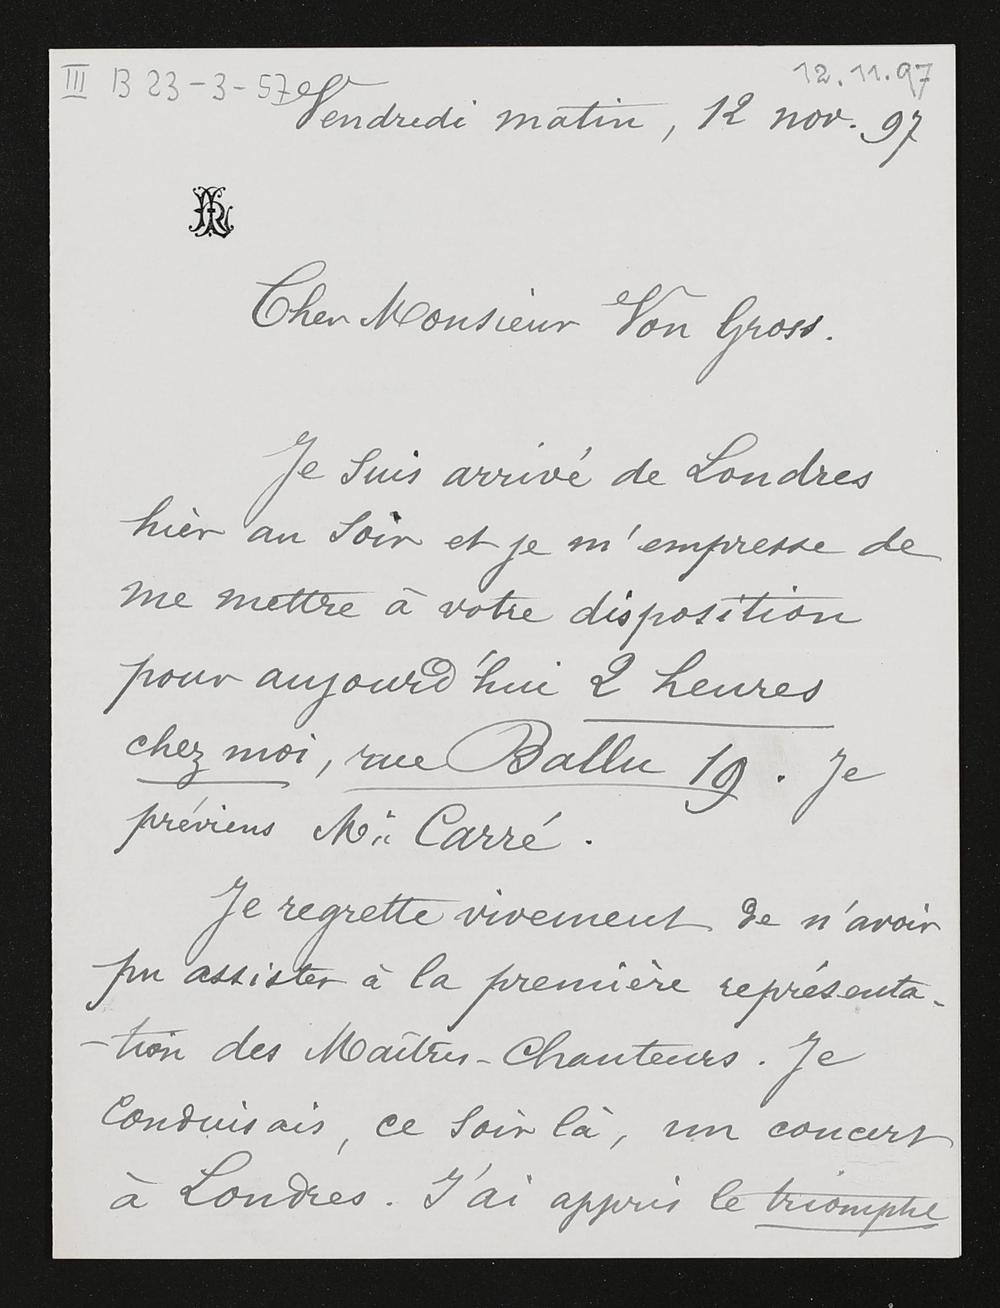 III B 23-3-57
12.11.97
Vendredi matin, 12 nov. 97
Cher Monsieur Von Gross.
Je suis arrivé de Londres
hièr au soir et je m'empresse de
me mettre à votre disposition
pour aujourd'hui 2 heures
chez moi, rue Ballu 19. Je
préviens Mr. Carré.
Je regrette vivement de n'avoir
pu assister à la première représenta-
-tion des Maîtres-Chanteurs. Je
conduisais, ce soir là, un concert
à Londres. J'ai appris le triomphe